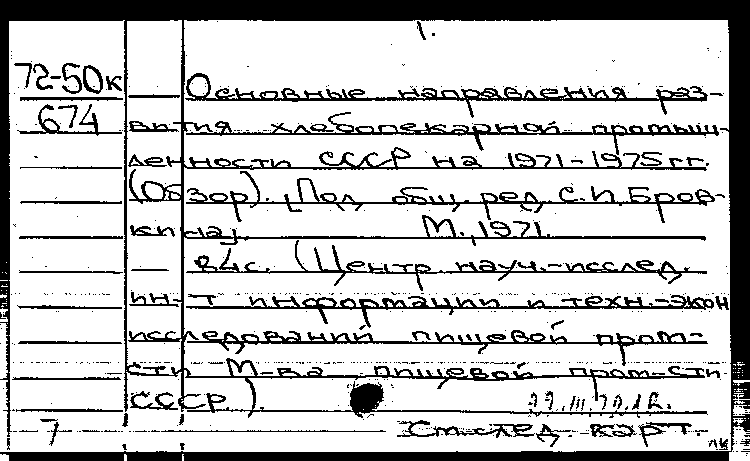 1.
72-50к
674
Основные направления раз-
вития хлебопекарной промыш-
ленности СССР на 1971-1975 гг.
(Обзор). [Под общ. ред. С.И. Бров-
кина].
М., 1971.
84с. (Центр науч.-исслед.
ин-т информации и техн.-экон
исследований пищевой пром-
сти М-ва пищевой пром-сти
СССР).
7
См. след. карт.